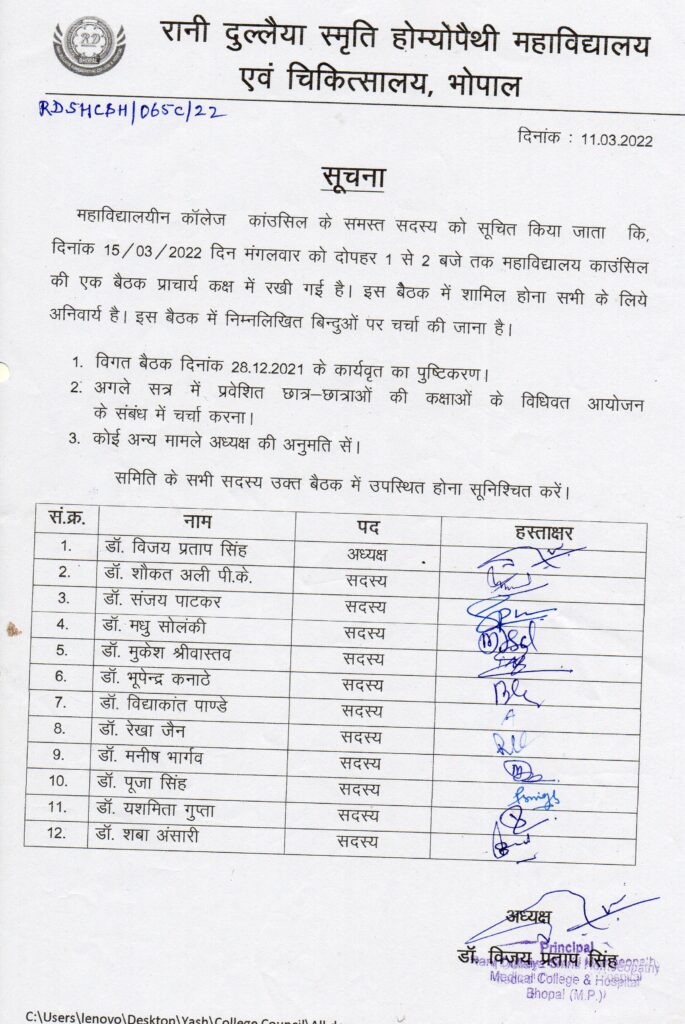 RD
BHOPAL
रानी दुल्लैया स्मृति होम्योपैथी महाविद्यालय
एवं चिकित्सालय, भोपाल
RDSHC&H/065C/22
दिनांक : 11.03.2022
सूचना
महाविद्यालयीन कॉलेज कांउसिल के समस्त सदस्य को सूचित किया जाता कि,
दिनांक 15/03/2022 दिन मंगलवार को दोपहर 1 से 2 बजे तक महाविद्यालय काउंसिल
की एक बैठक प्राचार्य कक्ष में रखी गई है। इस बैठक में शामिल होना सभी के लिये
अनिवार्य है। इस बैठक में निम्नलिखित बिन्दुओं पर चर्चा की जाना है।
1. विगत बैठक दिनांक 28.12.2021 के कार्यवृत का पुष्टिकरण।
2. अगले सत्र में प्रवेशित छात्र–छात्राओं की कक्षाओं के विधिवत आयोजन
के संबंध में चर्चा करना।
3. कोई अन्य मामले अध्यक्ष की अनुमति सें।
समिति के सभी सदस्य उक्त बैठक में उपस्थित होना सूनिश्चित करें।
सं.क्र. नाम पद हस्ताक्षर
1. डॉ. विजय प्रताप सिंह अध्यक्ष
2. डॉ. शौकत अली पी.के. सदस्य
3. डॉ. संजय पाटकर सदस्य
4. डॉ. मधु सोलंकी सदस्य
5. डॉ. मुकेश श्रीवास्तव सदस्य
6. डॉ. भूपेन्द्र कनाटे सदस्य
7. डॉ. विद्याकांत पाण्डे सदस्य
8. डॉ. रेखा जैन सदस्य
9. डॉ. मनीष भार्गव सदस्य
10. डॉ. पूजा सिंह सदस्य
11. डॉ. यशमिता गुप्ता सदस्य
12. डॉ. शबा अंसारी सदस्य
अध्यक्ष
डॉ विजय प्रताप सिंह
Principal
Medical College & Hospital
Bhopal (M.P.)
C:\Users\lenovo\Desktop\Yash\College Council\All